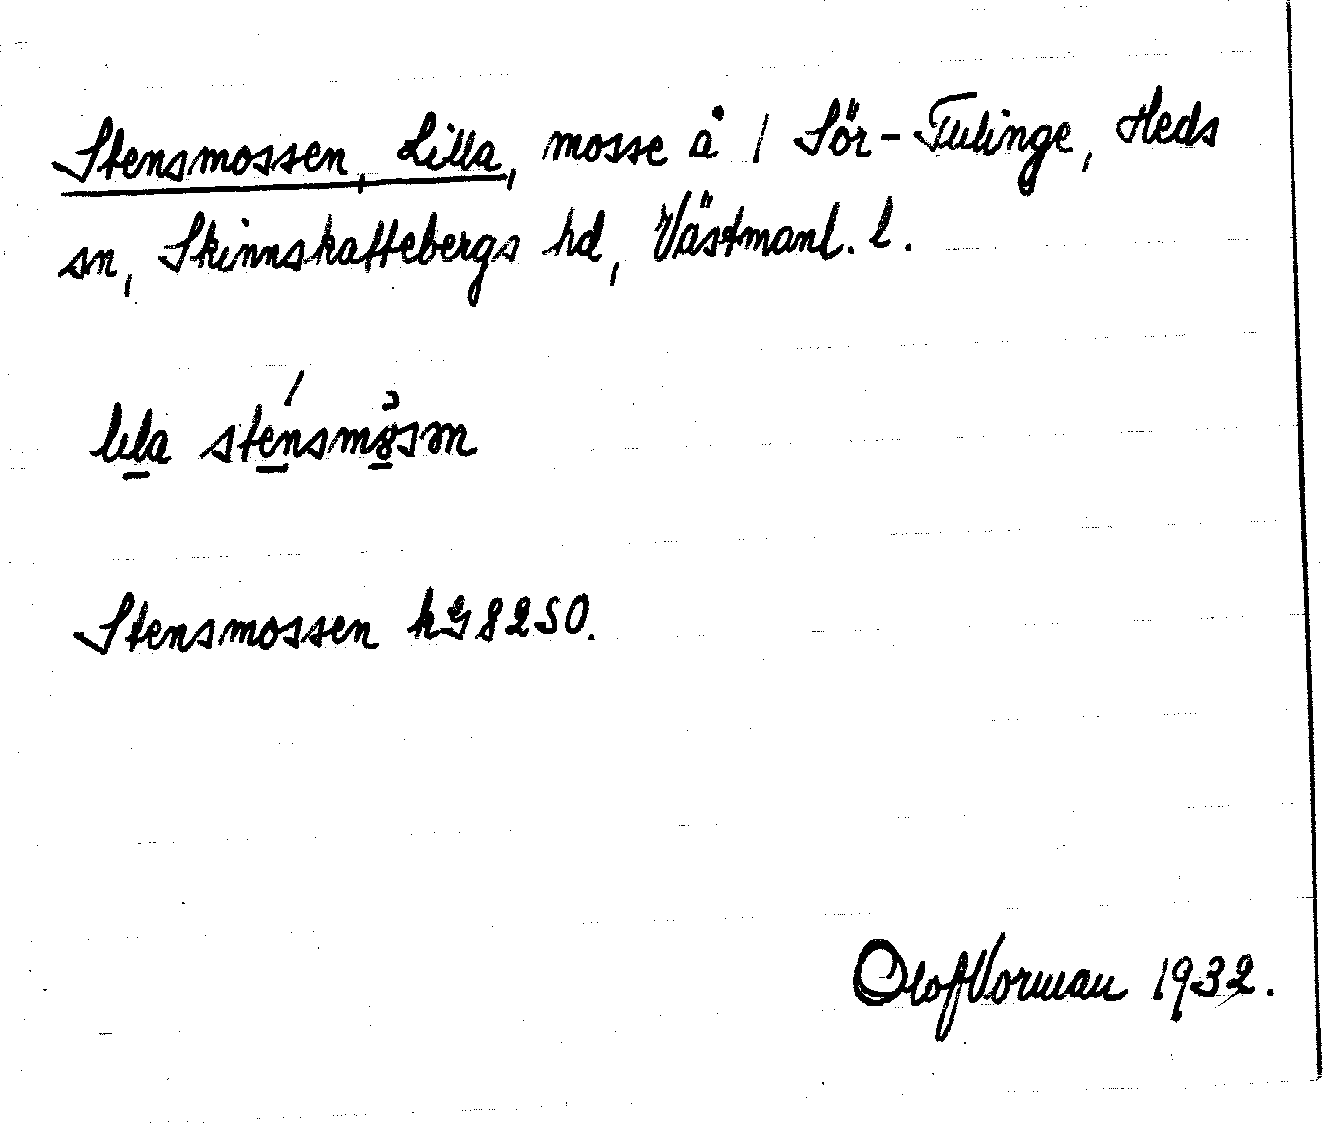 Stensmossen, Lilla, mosse å / Sör-Tulinge, Heds
sn, Skinnskattebergs hd, Västmanl. l.
lila stensmåsən
Stensmossen kG 8250.
Olof Vorman 1932.